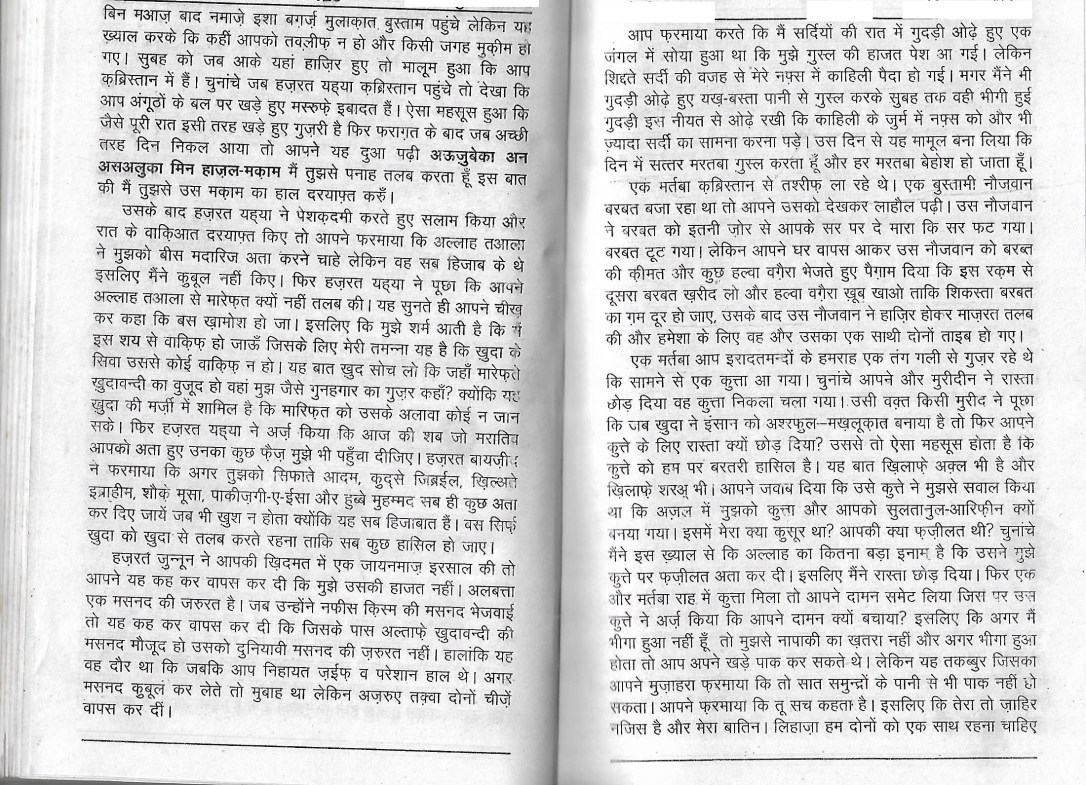 बिन मआज़ बाद नमाज़े इशा बग़र्ज़ मुलाक़ात बुस्ताम पहुंचे लेकिन यह
ख़्याल करके कि कहीं आपको तक्लीफ़ न हो और किसी जगह मुक़ीम हो
गए। सुबह को जब आके यहां हाज़िर हुए तो मालूम हुआ कि आप
क़ब्रिस्तान में हैं। चुनांचे जब हज़रत यह्या क़ब्रिस्तान पहुंचे तो देखा कि
आप अंगूठों के बल पर खड़े हुए मस्रुफ़े इबादत हैं। ऐसा महसूस हुआ कि
जैसे पूरी रात इसी तरह खड़े हुए गुज़री है फिर फराग़त के बाद जब अच्छी
तरह दिन निकल आया तो आपने यह दुआ पढ़ी अऊज़ुबेका अन
असअलुका मिन हाज़ल-मक़ाम मैं तुझसे पनाह तलब करता हूँ इस बात
की मैं तुझसे उस मक़ाम का हाल दरयाफ़्त करुँ।
उसके बाद हज़रत यह्या ने पेशक़दमी करते हुए सलाम किया और
रात के वाक़िआत दरयाफ़्त किए तो आपने फरमाया कि अल्लाह तआला
ने मुझको बीस मदारिज अता करने चाहे लेकिन वह सब हिजाब के थे
इसलिए मैंने क़ुबूल नहीं किए। फिर हज़रत यह्या ने पूछा कि आपने
अल्लाह तआला से मारेफ़त क्यों नहीं तलब की। यह सुनते ही आपने चीख़
कर कहा कि बस ख़ामोश हो जा। इसलिए कि मुझे शर्म आती है कि मैं
इस शय से वाक़िफ़ हो जाऊँ जिसके लिए मेरी तमन्ना यह है कि ख़ुदा के
सिवा उससे कोई वाक़िफ़ न हो। यह बात खुद सोच लो कि जहाँ मारेफ़ते
ख़ुदावन्दी का वुजूद हो वहां मुझ जैसे गुनहगार का गुज़र कहाँ? क्योंकि यह
ख़ुदा की मर्ज़ी में शामिल है कि मारिफ़त को उसके अलावा कोई न जान
सके। फिर हज़रत यह्या ने अर्ज़ किया कि आज की शब जो मरातिब
आपको अता हुए उनका कुछ फ़ैज़ मुझे भी पहुँचा दीजिए। हज़रत बायज़ीद
ने फरमाया कि अगर तुझको सिफाते आदम, क़ुद्से जिब्रईल, ख़िल्अते
इब्राहीम, शौक़े मूसा, पाकीज़गी-ए-ईसा और हुब्बे मुहम्मद सब ही कुछ अता
कर दिए जायें जब भी खुश न होता क्योंकि यह सब हिजाबात हैं। बस सिर्फ़
ख़ुदा को ख़ुदा से तलब करते रहना ताकि सब कुछ हासिल हो जाए।
हज़रत जुन्नून ने आपकी ख़िदमत में एक जायनमाज़ इरसाल की तो
आपने यह कह कर वापस कर दी कि मुझे उसकी हाजत नहीं। अलबत्ता
एक मसनद की जरुरत है। जब उन्होंने नफीस क़िस्म की मसनद भेजवाई
तो यह कह कर वापस कर दी कि जिसके पास अल्ताफ़े ख़ुदावन्दी की
मसनद मौजूद हो उसको दुनियावी मसनद की ज़रुरत नहीं। हालांकि यह
वह दौर था कि जबकि आप निहायत ज़ईफ़ व परेशान हाल थे। अगर
मसनद क़ुबूल कर लेते तो मुबाह था लेकिन अज़रुए तक़्वा दोनों चीज़ें
वापस कर दीं।
आप फ़रमाया करते कि मैं सर्दियों की रात में गुदड़ी ओढ़े हुए एक
जंगल में सोया हुआ था कि मुझे गुस्ल की हाजत पेश आ गई। लेकिन
शिद्दते सर्दी की वजह से मेरे नफ़्स में काहिली पैदा हो गई। मगर मैंने भी
गुदड़ी ओढ़े हुए यख़-बस्ता पानी से गुस्ल करके सुबह तक वही भीगी हुई
गुदड़ी इस नीयत से ओढ़े रखी कि काहिली के जुर्म में नफ़्स को और भी
ज़्यादा सर्दी का सामना करना पड़े। उस दिन से यह मामूल बना लिया कि
दिन में सत्तर मरतबा गुस्ल करता हूँ और हर मरतबा बेहोश हो जाता हूँ।
एक मर्तबा क़ब्रिस्तान से तश्रीफ़ ला रहे थे। एक बुस्तामी नौजवान
बरबत बजा रहा था तो आपने उसको देखकर लाहौल पढ़ी। उस नौजवान
ने बरबत को इतनी ज़ोर से आपके सर पर दे मारा कि सर फट गया।
बरबत टूट गया। लेकिन आपने घर वापस आकर उस नौजवान को बरब्त
की क़ीमत और कुछ हल्वा वग़ैरा भेजते हुए पैग़ाम दिया कि इस रक़म से
दूसरा बरबत ख़रीद लो और हल्वा वग़ैरा ख़ूब खाओ ताकि शिकस्ता बरबत
का ग़म दूर हो जाए, उसके बाद उस नौजवान ने हाज़िर होकर माज़रत तलब
की और हमेशा के लिए वह और उसका एक साथी दोनों ताइब हो गए।
एक मर्तबा आप इरादतमन्दों के हमराह एक तंग गली से गुज़र रहे थे
कि सामने से एक कुत्ता आ गया। चुनांचे आपने और मुरीदीन ने रास्ता
छोड़ दिया वह कुत्ता निकला चला गया। उसी वक़्त किसी मुरीद ने पूछा
कि जब ख़ुदा ने इंसान को अश्रफुल–मख़लूक़ात बनाया है तो फिर आपने
कुत्ते के लिए रास्ता क्यों छोड़ दिया? उससे तो ऐसा महसूस होता है कि
कुत्ते को हम पर बरतरी हासिल है। यह बात ख़िलाफ़े अक़्ल भी है और
ख़िलाफ़े शरअ् भी। आपने जवाब दिया कि उसे कुत्ते ने मुझसे सवाल किया
था कि अज़ल में मुझको कुत्ता और आपको सुलतानुल-आरिफ़ीन क्यों
बनया गया। इसमें मेरा क्या कुसूर था? आपकी क्या फज़ीलत थी? चुनांचे
मैंने इस ख़्याल से कि अल्लाह का कितना बड़ा इनाम है कि उसने मुझे
कुत्ते पर फज़ीलत अता कर दी। इसलिए मैंने रास्ता छोड़ दिया। फिर एक
और मर्तबा राह में कुत्ता मिला तो आपने दामन समेट लिया जिस पर उस
कुत्ते ने अर्ज़ किया कि आपने दामन क्यों बचाया? इसलिए कि अगर मैं
भीगा हुआ नहीं हूँ तो मुझसे नापाकी का ख़तरा नहीं और अगर भीगा हुआ
होता तो आप अपने खड़े पाक कर सकते थे। लेकिन यह तकब्बुर जिसका
आपने मुज़ाहरा फ़रमाया कि तो सात समुन्द्रों के पानी से भी पाक नहीं हो
सकता। आपने फ़रमाया कि तू सच कहता है। इसलिए कि तेरा तो ज़ाहिर
नजिस है और मेरा बातिन। लिहाज़ा हम दोनों को एक साथ रहना चाहिए